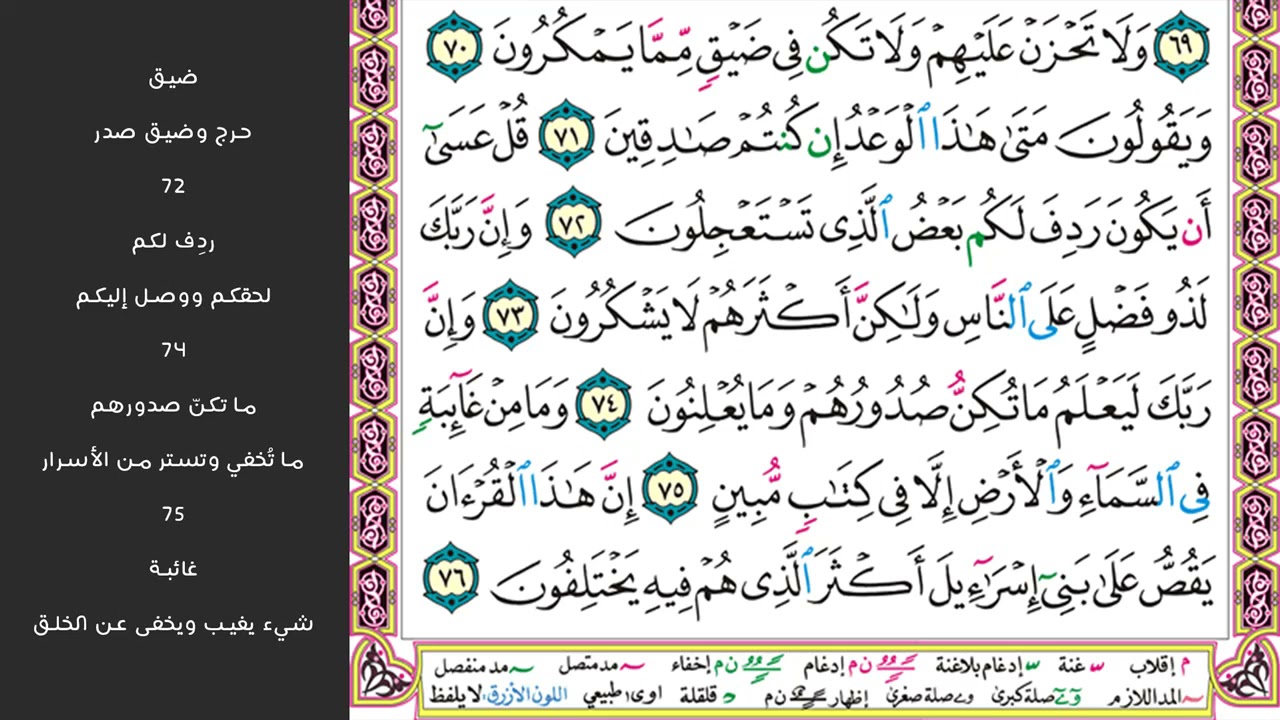 ٦٩ وَلَا تَحْزَنْ عَلَيْهِمْ وَلَا تَكُن فِى ضَيْقٍ مِّمَّا يَمْكُرُونَ ٧٠
وَيَقُولُونَ مَتَىٰ هَٰذَا ٱلْوَعْدُ إِن كُنتُمْ صَٰدِقِينَ ٧١ قُلْ عَسَىٰٓ
أَن يَكُونَ رَدِفَ لَكُم بَعْضُ ٱلَّذِى تَسْتَعْجِلُونَ ٧٢ وَإِنَّ رَبَّكَ
لَذُو فَضْلٍ عَلَى ٱلنَّاسِ وَلَٰكِنَّ أَكْثَرَهُمْ لَا يَشْكُرُونَ ٧٣ وَإِنَّ
رَبَّكَ لَيَعْلَمُ مَا تُكِنُّ صُدُورُهُمْ وَمَا يُعْلِنُونَ ٧٤ وَمَا مِنْ غَآئِبَةٍ
فِى ٱلسَّمَآءِ وَٱلْأَرْضِ إِلَّا فِى كِتَٰبٍ مُّبِينٍ ٧٥ إِنَّ هَٰذَا ٱلْقُرْءَانَ
يَقُصُّ عَلَىٰ بَنِىٓ إِسْرَٰٓءِيلَ أَكْثَرَ ٱلَّذِى هُمْ فِيهِ يَخْتَلِفُونَ ٧٦
م إقلاب س غنة س إدغام بلاغنة ن م إدغام ن م إخفاء مد متصل مد منفصل
المد اللازم صلة كبرى صلة صغرى إظهار ن م قلقلة اوى طبيعي اللون الأزرق: لا يلفظ
ضيق
حرج وضيق صدر
72
ردِف لكم
لحقكم ووصل إليكم
74
ما تكنّ صدورهم
ما تُخفي وتستر من الأسرار
75
غائبة
شيء يغيب ويخفى عن الخلق